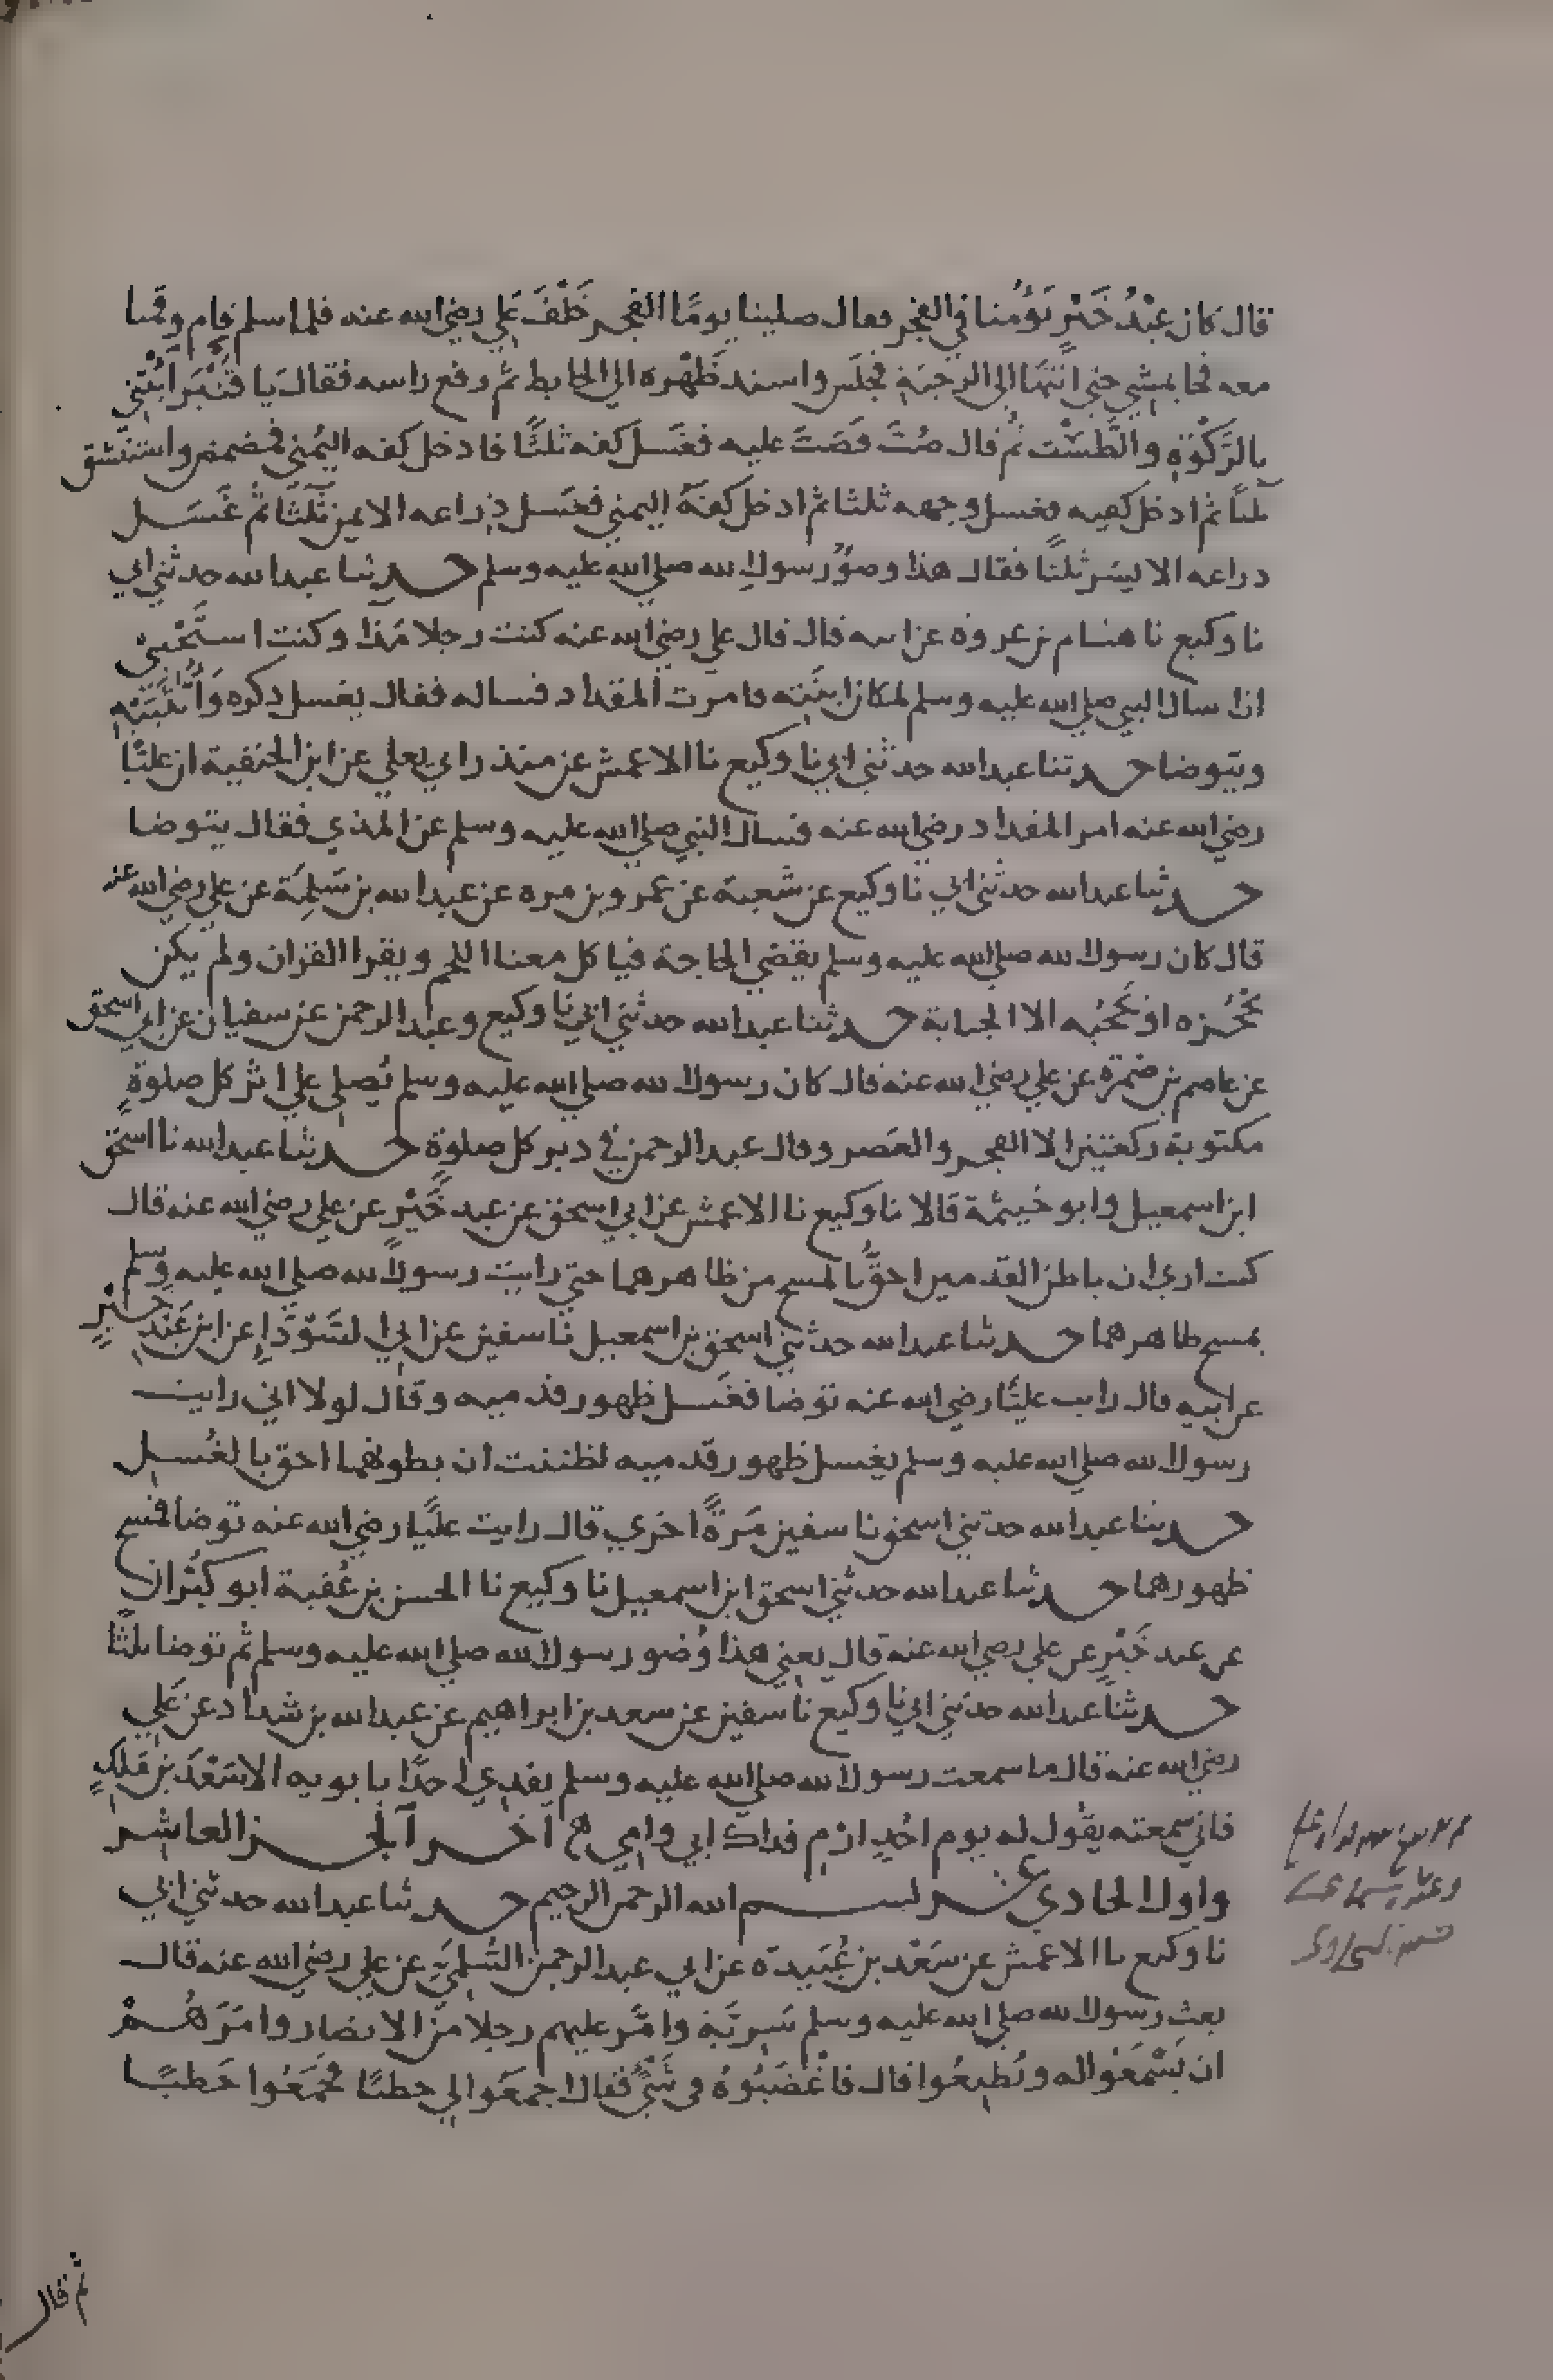 قال كان عَبْدُ خَيْرٍ يَؤُمنا في الفجر فقال صلينا يومًا الفجر خَلْفَ عَلِي رضي الله عنه فلما سلم قام وقمنا
معه فجا يمشي حتى انتهَا الى الرحبَةِ فجلَس واسند ظَهْره الى الحايط ثم رفع راسه فقالَ يَا قَنْبَر ائْتِنِي
بالرَّكْوَةِ والطَّسْت ثُم قال صُبَّ فَصَبَّ عليه فغَسل كفه ثلثًا فادخل كفه اليُمْنى فمضمض واستنشق
ثلثًا ثم ادخل كفيه فغسل وجهه ثلثا ثم ادخل كفهُ اليمنى فغَسل ذِراعه الايمن ثَلثًا ثُم غَسَل
دراعه الايسَر ثلثًا فقال هذا وضُوُ رسول الله صلى الله عليه وسلم حدثنا عبد الله حدثني ابي
نا وكيع نا هشام بن عروة عن ابيه قال قال علي رضي الله عنه كنت رجلا مَذا وكنت استَحْيِي
ان اسال النبي صلى الله عليه وسلم لمكان ابنَته فامرت المقداد فساله فقال يغسل دكره وَاُنْثَيَيْهِ
ويتوضا حدثنا عبد الله حدثني ابي نا وكيع نا الاعمش عن منذر ابي يعلى عن ابن الحنفية ان عليًا
رضي الله عنه امر المقداد رضي الله عنه فسال النبي صلى الله عليه وسلم عن المذي فقال يتوضا
حدثنا عبد الله حدثني ابي نا وكيع عن شعبة عن عمرو بن مره عن عبد الله بن سَلِمَة عن علي رضي الله عنه
قال كان رسول الله صلى الله عليه وسلم يقضي الحاجة فياكل معنا اللحم ويقرا القران ولم يكن
يَحْجُزه او يَحْجُبه الا الجنابة حدثنا عبد الله حدثني ابي نا وكيع وعبد الرحمن عن سفيان عن ابي اسحق
عن عاصم بن ضَمْرَة عن علي رضي الله عنه قال كان رسول الله صلى الله عليه وسلم يُصلي على اثر كل صلوةٍ
مكتوبة ركعتين الا الفجر والعَصر وقال عبد الرحمن في دبر كل صلوةٍ حدثنا عبد الله نا اسحق
ابن اسمعيل وابو خيثمة قالا نا وكيع نا الاعمش عن ابي اسحق عن عبد خَيْرٍ عن علي رضي الله عنه قال
كنت ارى ان باطن القدمين احقُّ بالمسح من ظاهرهما حتى رايت رسول الله صلى الله عليه وسلم
يمسح ظاهرهما حدثنا عبد الله حدثني اسحق بن اسمعيل نا سفين عن ابي السَّوْدَاءِ عن ابن عَبْدِ خيْرٍ
عن ابيه قال رايت عليًّا رضي الله عنه توضا فغَسل ظهور قدميه وقال لولا اني رايت
رسول الله صلى الله عليه وسلم يغسل ظهور قدميه لظننت ان بطونهما احق بالغُسل
حدثنا عبد الله حدثني اسحق نا سفين مَرةً اخرى قال رايت عليًّا رضي الله عنه توضا فمسح
ظهورهما حدثنا عبد الله حدثني اسحق ابن اسمعيل نا وكيع نا الحسن بن عُقبة ابو كبْران
عن عبد خَيْرٍ عن علي رضي الله عنه قال يعني هذا وُضو رسول الله صلى الله عليه وسلم ثم توضا ثلثًا
حدثنا عبد الله حدثني ابي نا وكيع نا سفين عن سعد بن ابراهيم عن عبد الله بن شداد عن عَلي
رضي الله عنه قال ما سمعت رسول الله صلى الله عليه وسلم يفدي احدًا بابويه الا سَعْدَ بن مَلِكٍ
فاني سمعته يقُول له يوم احُدٍ ارْمِ فداكَ ابي وامي ح اخر الجز العاشر
واول الحادي عشر بسم الله الرحمن الرحيم حدثنا عبد الله حدثني ابي
نا وكيع نا الاعمش عن سَعْد بن عُبَيدَة عن ابي عبد الرحمن السُّلَمِيِّ عن علي رضي الله عنه قال
بعث رسول الله صلى الله عليه وسلم سَرِيَّةً وامَّر عليهم رجلا منَ الانصار وامَرَهُمْ
ان يَسْمَعُوا له ويُطِيعُوا قال فاَغْضَبُوهُ في شَيْءٍ فقال اجمعَوا لي حطبًا فجَمَعُوا حَطبًا
ثم قال